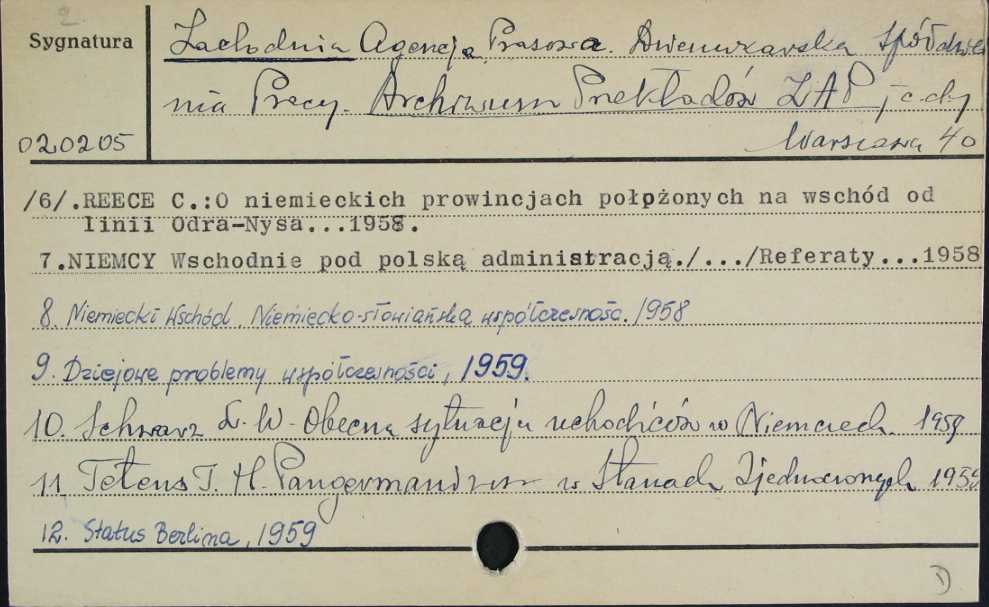 2.
Sygnatura
Zachodnia Agencja Prasowa. Dziennikarska Spółdziel
nia Pracy. Archiwum Przekładów ZAP, c.d.
020205
Warszawa 40
/6/.REECE C.:O niemieckich prowincjach połpżonych na wschód od
linii Odra-Nysa...1958.
7.NIEMCY Wschodnie pod polską administracją./.../Referaty...1958
8. Niemiecki Wschód. Niemiecko-słowiańska współczesność. 1958
9. Dziejowe problemy współczesności, 1959.
10. Schwarz L. W. Obecna sytuacja uchodźców w Niemczech. 1959
11. Tetens T. H. Pangermanizm w Stanach Zjednoczonych 1959
12. Status Berlina, 1959